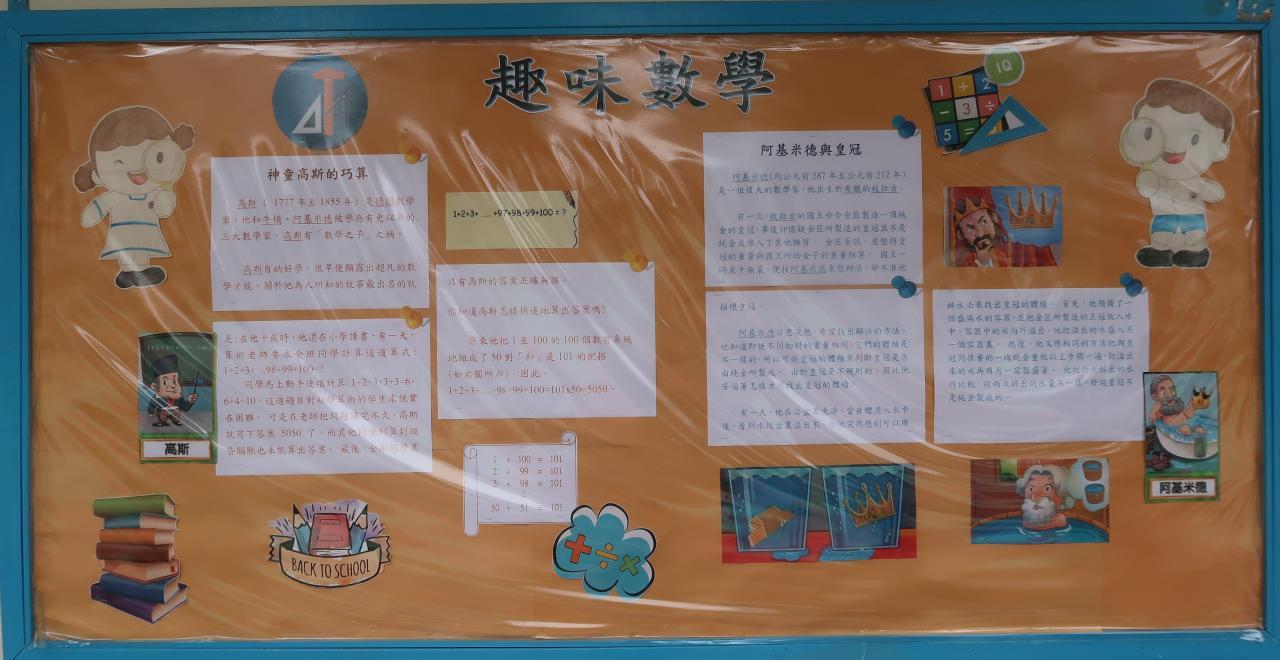 趣味數學
IQ
1 + 2
- 3 ÷
5 =
神童高斯的巧算
高斯（ 1777 年至 1855 年）是德國數學
家，他和牛頓、阿基米德被譽為有史以來的
三大數學家。高斯有「數學之子」之稱。
高斯自幼好學，很早便顯露出超凡的數
學才能。關於他為人所知的故事最出名的就
是：在他十歲時，他還在小學讀書，有一天，
算術老師要求全班同學計算這道算式：
1+2+3+…98+99+100=?
同學馬上動手逐項計算：1+2=3+3=6，
6+4=10，這道題目對初學算術的學生來說實
在困難。可是在老師把問題講完不久，高斯
就寫下答案 5050 了，而其他同學則算到頭
昏腦脹也未能算出答案。最後，全班同學裏
高斯
1+2+3+ ... +97+98+99+100 = ?
只有高斯的答案正確無誤。
你知道高斯怎樣快速地算出答案嗎?
原來他把 1 至 100 的 100 個數有系統
地組成了 50 對「和」是 101 的配搭
(如右圖所示)，因此，
1+2+3+…+98+99+100=101x50=5050。
1 + 100 = 101
2 + 99 = 101
3 + 98 = 101
⋮
50 + 51 = 101
BACK TO SCHOOL
+ ÷ ×
阿基米德與皇冠
阿基米德(約公元前 287 年至公元前 212 年)
是一位偉大的數學家，他出生於希臘的敍拉古。
有一次，敍拉古的國王命令金匠製造一頂純
金的皇冠，事後卻懷疑金匠所製造的皇冠並不是
純金或滲入了其他雜質。金匠否認，並堅持皇
冠的重量與國王所給金子的重量相等。國王一
時束手無策，便找阿基米德來想辦法，卻不准他
損壞皇冠。
阿基米德日思夜想，希望找出解決的方法。
他知道即使不同物料的重量相同，它們的體積是
不一樣的，所以可從皇冠的體積來判斷皇冠是否
由純金所製成。由於皇冠是不規則的，因此他
苦惱著怎樣才可找出皇冠的體積。
有一天，他在浴盆裏洗澡，當身體浸入水中
後，看到水從盆裏溢出來，令他突然想到可以用
排水法來找出皇冠的體積。首先，他預備了一
個盛滿水的容器，並把金匠所製造的王冠放入水
中，容器中的水向外溢出，他把溢出的水盛入另
一個容器裏。然後，他又用相同的方法把與皇
冠同樣重的一塊純金重做以上步驟一遍，把溢出
來的水再用另一容器盛著。他把兩次排出的水
作比較，從兩次排出的水量不一樣，證純皇冠不
是純金製成的。
阿基米德